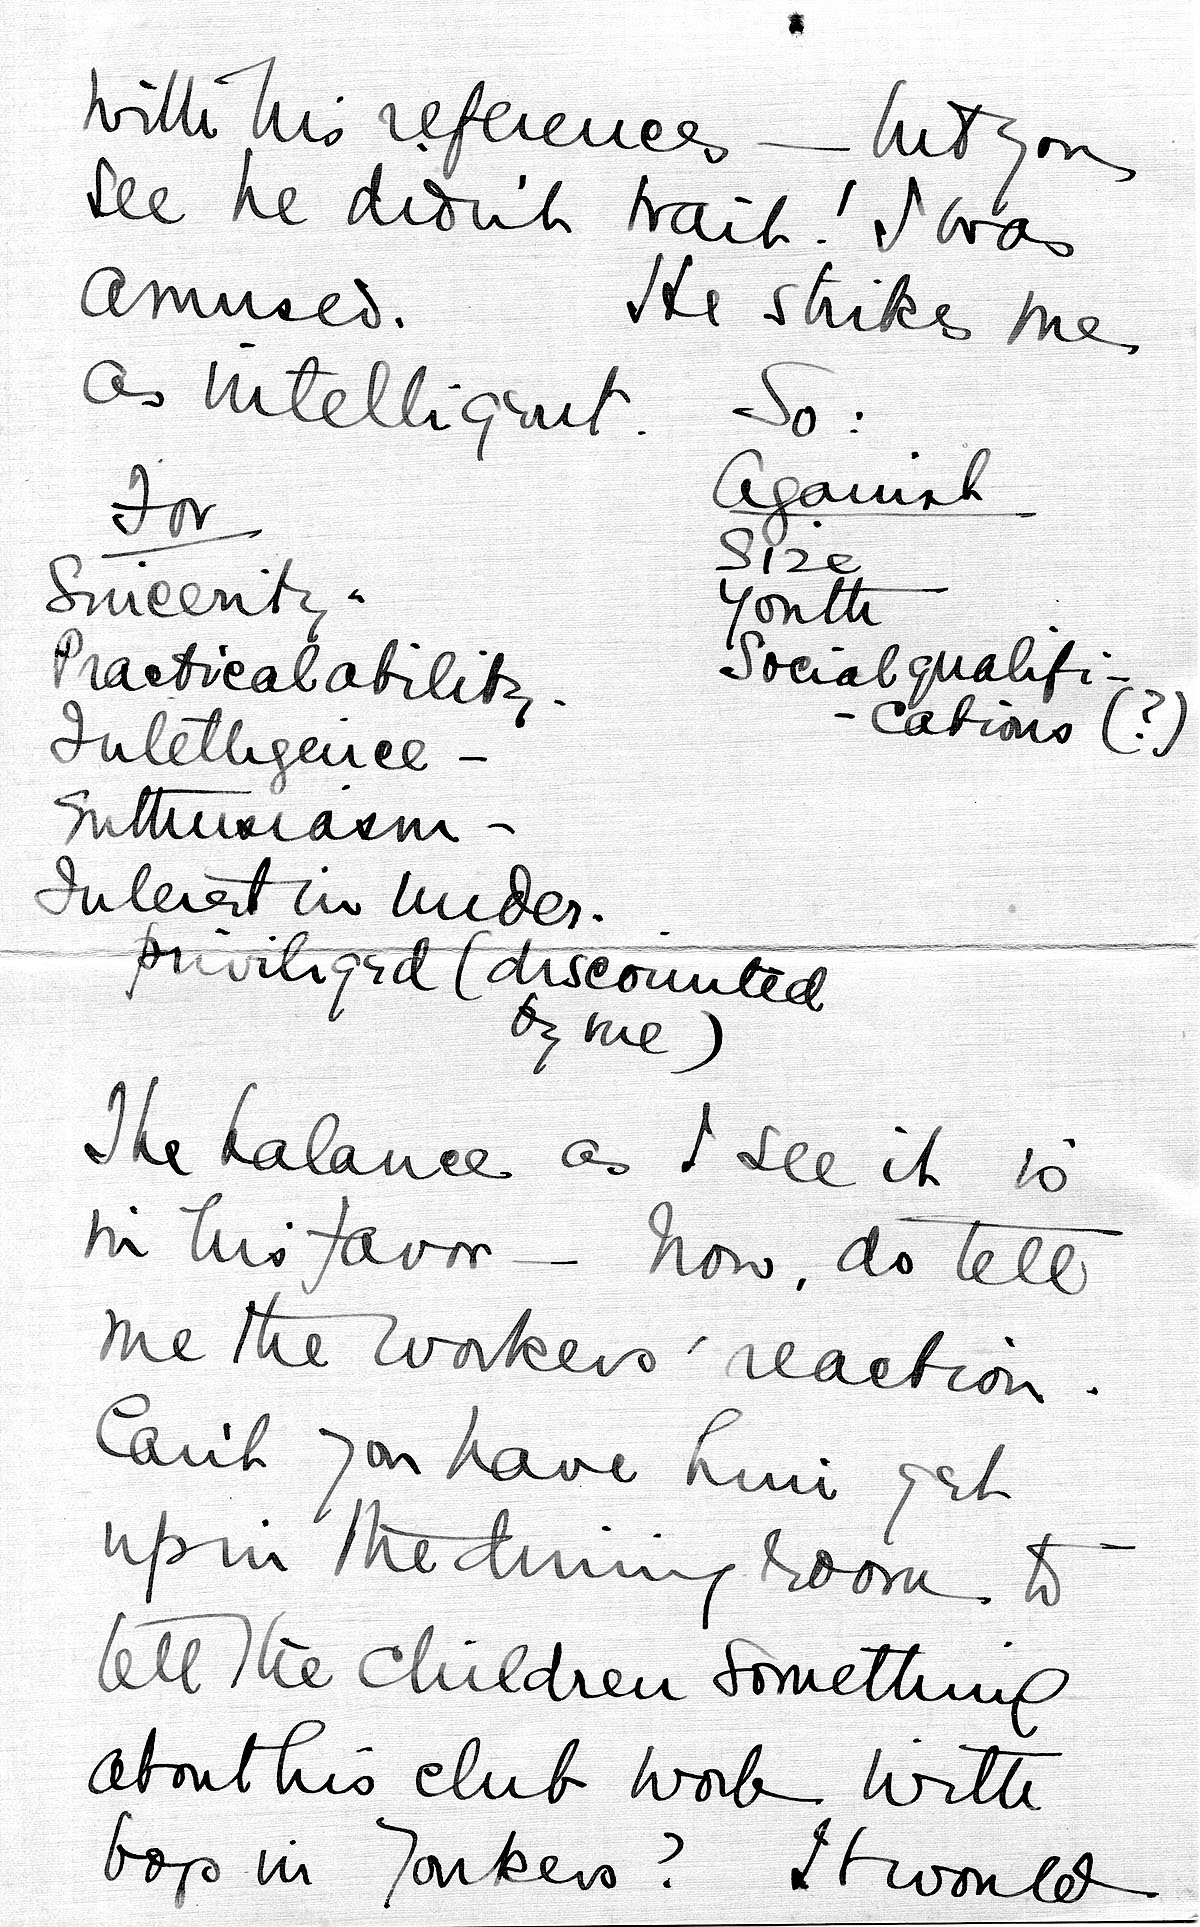 with his references — but you
see he didn't wait! I was
amused. He strikes me
as intelligent. So:
For
Against
Sincerity -
Size
Practical ability -
Youth
Intelligence -
Social qualifi-
- cations (?)
Enthusiasm -
Interest in under-
priviliged (discounted
by me)
The balance as I see it is
in his favor — Now, do tell
me the workers' reaction.
Can't you have him get
up in the dining room to
tell the children something
about his club work with
boys in Yonkers? It would